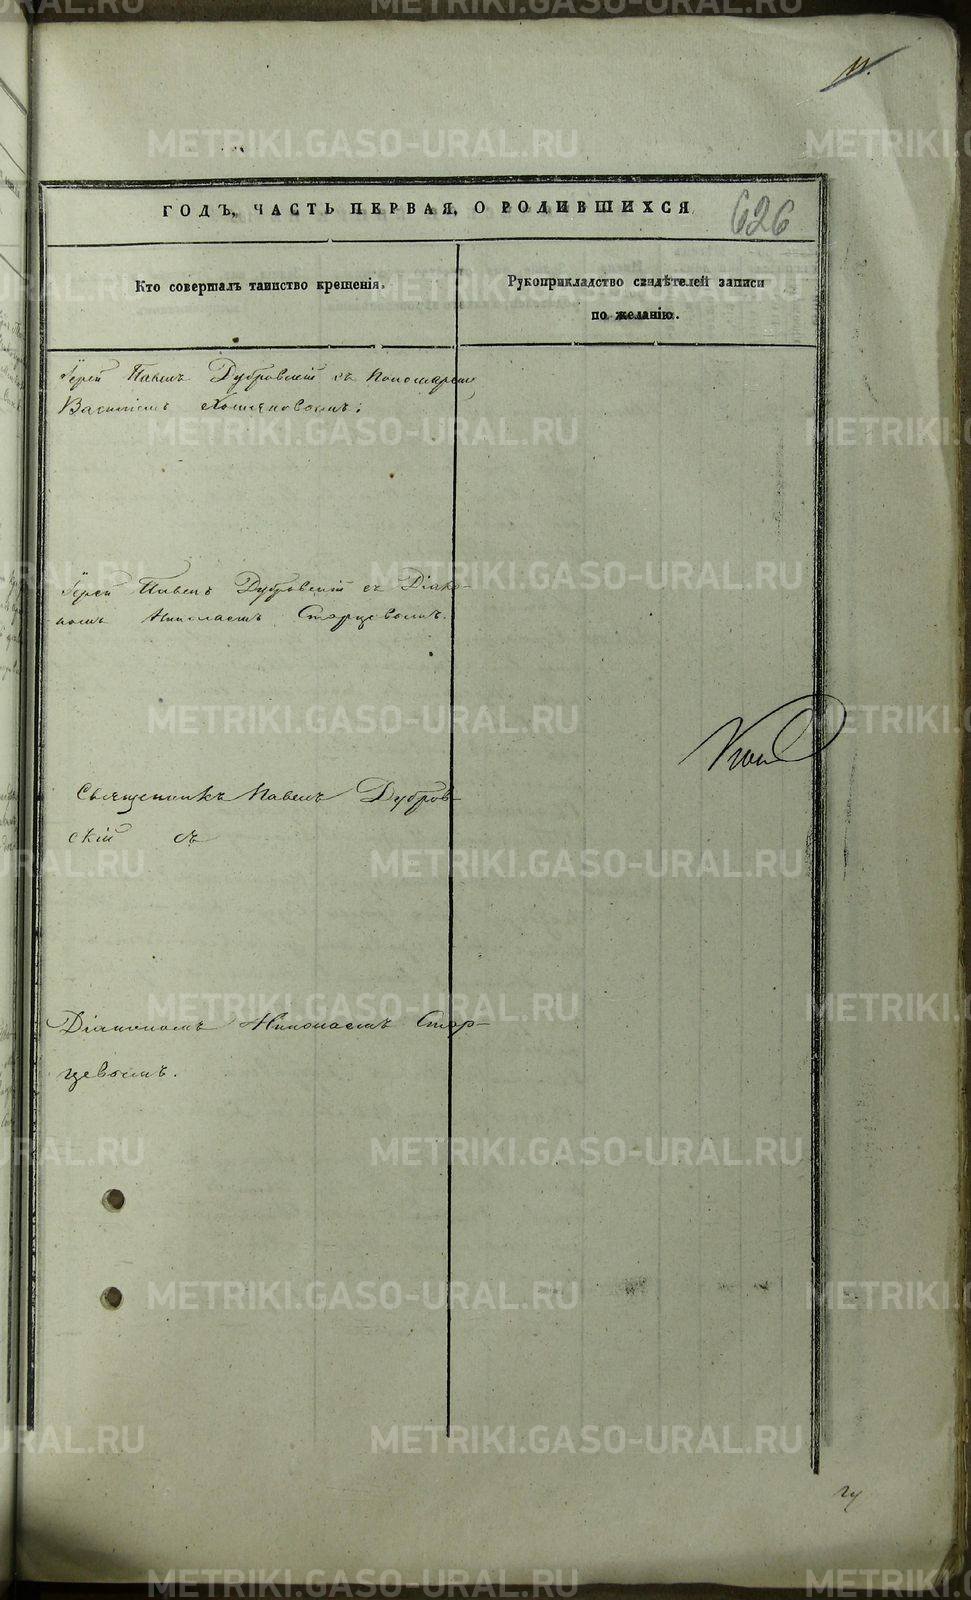 11.
ГОДЪ, ЧАСТЬ ПЕРВАЯ, О РОДИВШИХСЯ
626
Кто совершалъ таинство крещенія.
Рукоприкладство свидѣтелей записи
по желанію.
Іерей Павелъ Дубровскій съ Пономаремъ
Василіемъ
Іерей Павелъ Дубровскій съ Діако-
номъ Николаемъ Старцевымъ.
Священникъ Павелъ Дубров-
скій съ
Діакономъ Николаемъ Стар-
цевымъ.
METRIKI.GASO-URAL.RU